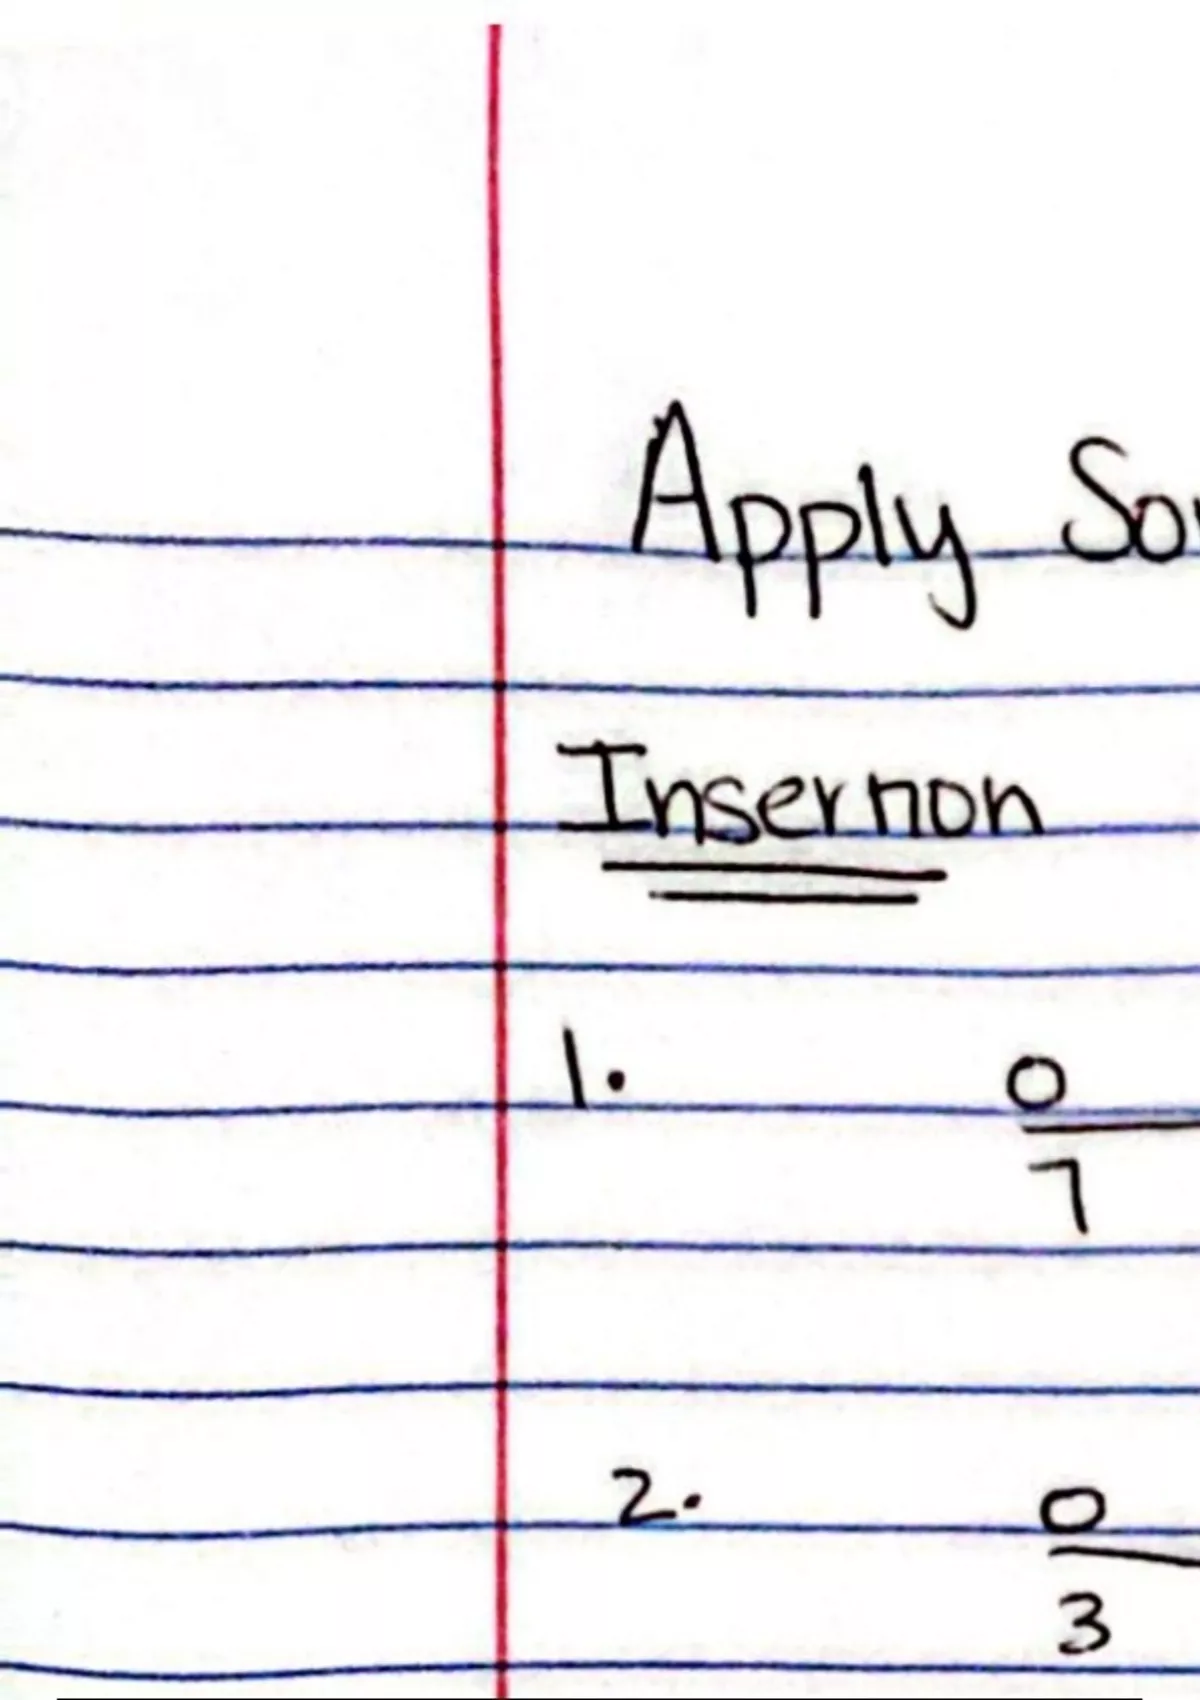 Apply So
Insertion
1. 0
7
2. 0
3